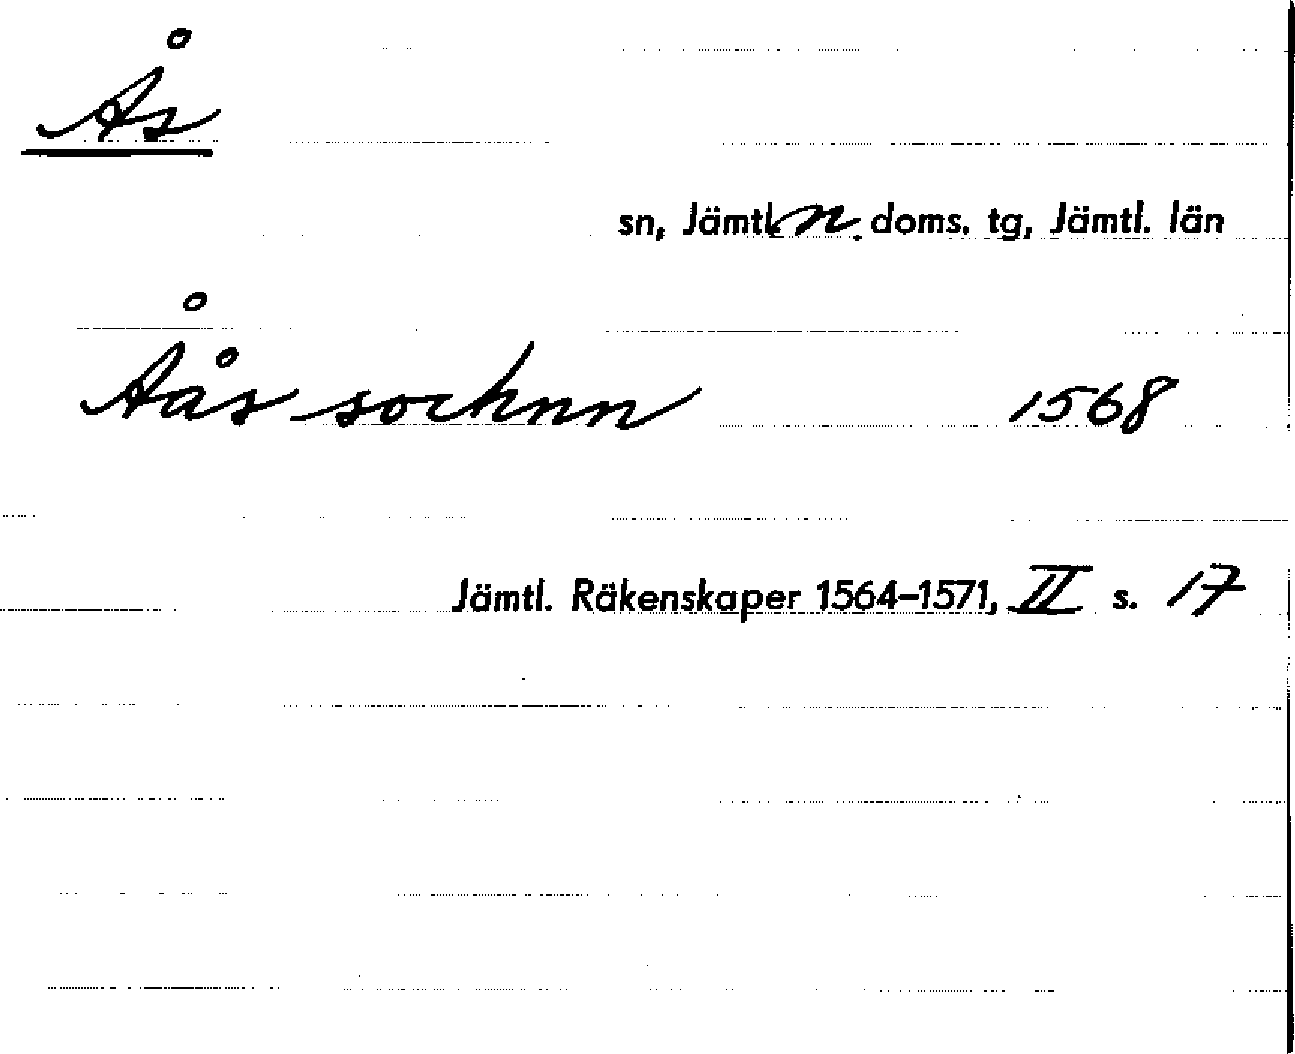 Ås
sn, Jämtl. n. doms. tg, Jämtl. län
Åås sochnn 1568
Jämtl. Räkenskaper 1564–1571, II s. 17